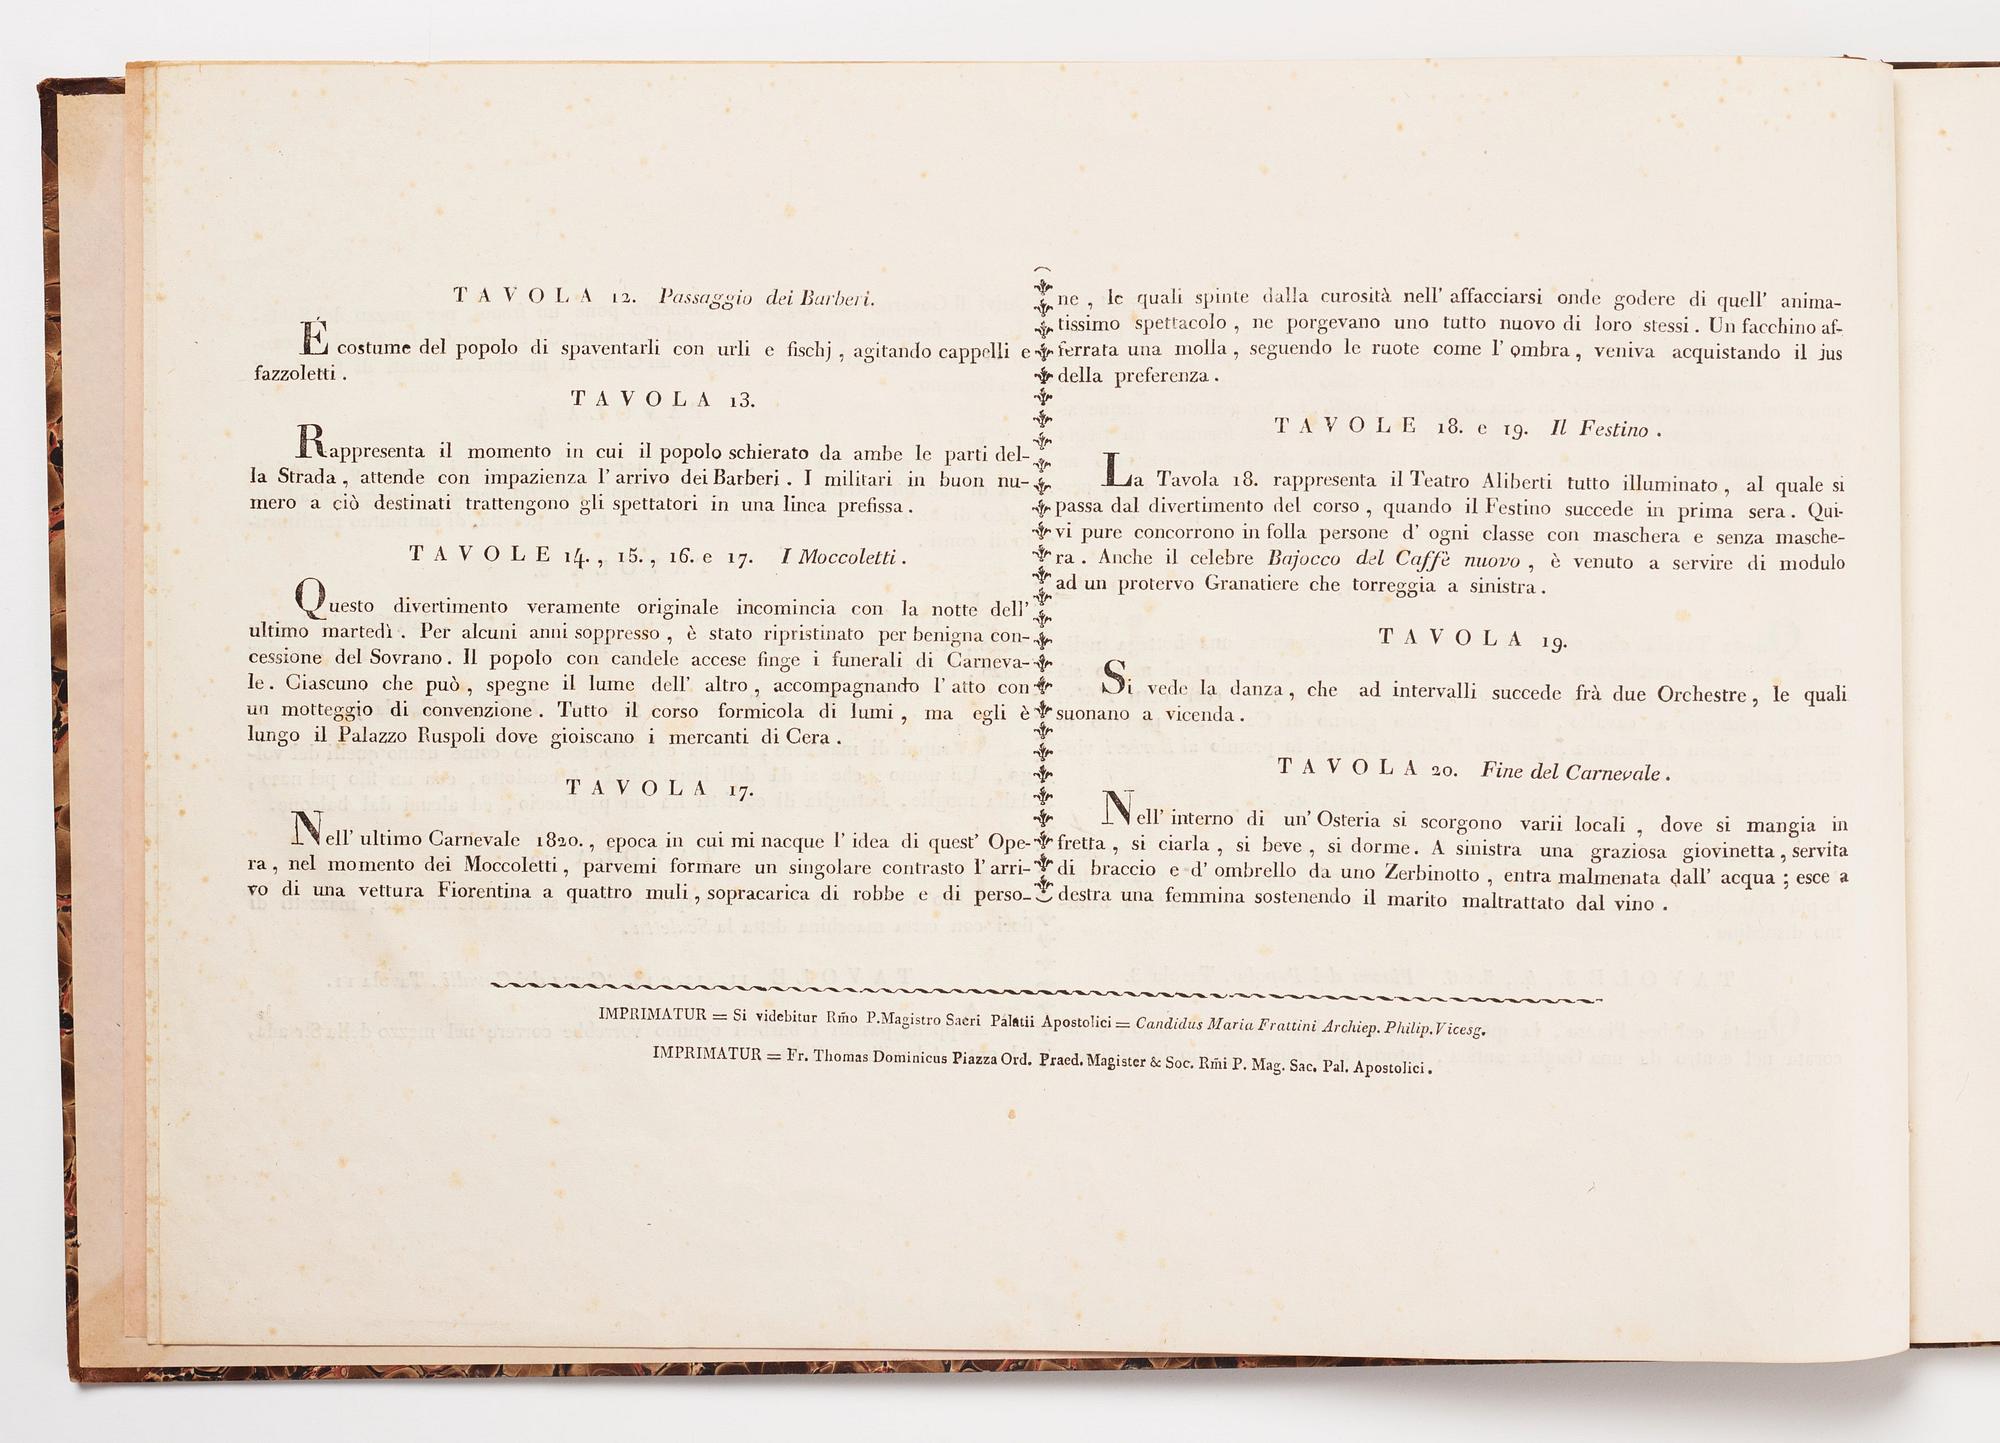 TAVOLA 12. Passaggio dei Barberi.
É costume del popolo di spaventarli con urli e fischj, agitando cappelli e
fazzoletti.
TAVOLA 13.
Rappresenta il momento in cui il popolo schierato da ambe le parti del-
la Strada, attende con impazienza l'arrivo dei Barberi. I militari in buon nu-
mero a ciò destinati trattengono gli spettatori in una linea prefissa.
TAVOLE 14., 15., 16. e 17. I Moccoletti.
Questo divertimento veramente originale incomincia con la notte dell'
ultimo martedì. Per alcuni anni soppresso, è stato ripristinato per benigna con-
cessione del Sovrano. Il popolo con candele accese finge i funerali di Carneva-
le. Ciascuno che può, spegne il lume dell' altro, accompagnando l'atto con
un motteggio di convenzione. Tutto il corso formicola di lumi, ma egli è
lungo il Palazzo Ruspoli dove gioiscano i mercanti di Cera.
TAVOLA 17.
Nell' ultimo Carnevale 1820., epoca in cui mi nacque l'idea di quest' Ope-
ra, nel momento dei Moccoletti, parvemi formare un singolare contrasto l'arri-
vo di una vettura Fiorentina a quattro muli, sopracarica di robbe e di perso-
ne, le quali spinte dalla curosità nell' affacciarsi onde godere di quell' anima-
tissimo spettacolo, ne porgevano uno tutto nuovo di loro stessi. Un facchino af-
ferrata una molla, seguendo le ruote come l'ombra, veniva acquistando il jus
della preferenza.
TAVOLE 18. e 19. Il Festino.
La Tavola 18. rappresenta il Teatro Aliberti tutto illuminato, al quale si
passa dal divertimento del corso, quando il Festino succede in prima sera. Qui-
vi pure concorrono in folla persone d' ogni classe con maschera e senza masche-
ra. Anche il celebre Bajocco del Caffè nuovo, è venuto a servire di modulo
ad un protervo Granatiere che torreggia a sinistra.
TAVOLA 19.
Si vede la danza, che ad intervalli succede frà due Orchestre, le quali
suonano a vicenda.
TAVOLA 20. Fine del Carnevale.
Nell' interno di un' Osteria si scorgono varii locali, dove si mangia in
fretta, si ciarla, si beve, si dorme. A sinistra una graziosa giovinetta, servita
di braccio e d' ombrello da uno Zerbinotto, entra malmenata dall' acqua; esce a
destra una femmina sostenendo il marito maltrattato dal vino.
IMPRIMATUR = Si videbitur Rm̃o P.Magistro Sacri Palatii Apostolici = Candidus Maria Frattini Archiep. Philip. Vicesg.
IMPRIMATUR = Fr. Thomas Dominicus Piazza Ord. Praed. Magister & Soc. Rm̃i P. Mag. Sac. Pal. Apostolici.